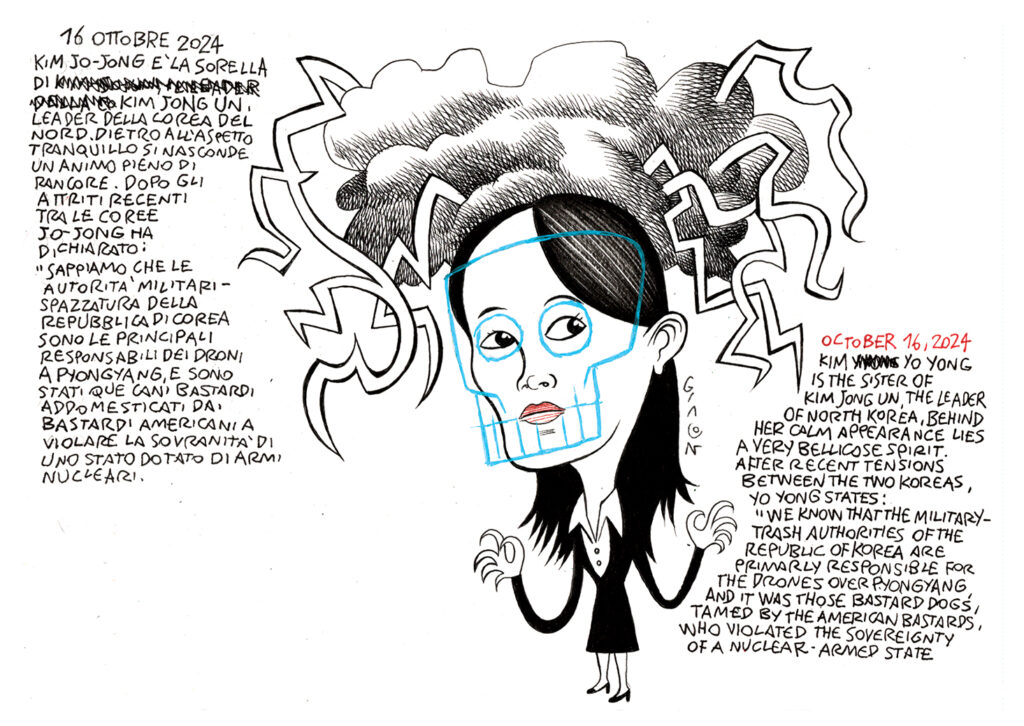 16 OTTOBRE 2024
KIM JO-JONG E' LA SORELLA
DI
KIM JONG UN,
LEADER DELLA COREA DEL
NORD. DIETRO ALL'ASPETTO
TRANQUILLO SI NASCONDE
UN ANIMO PIENO DI
RANCORE. DOPO GLI
ATTRITI RECENTI
TRA LE COREE
JO-JONG HA
DICHIARATO:
"SAPPIAMO CHE LE
AUTORITA' MILITARI-
SPAZZATURA DELLA
REPUBBLICA DI COREA
SONO LE PRINCIPALI
RESPONSABILI DEI DRONI
A PYONGYANG, E SONO
STATI QUE CANI BASTARDI
ADDOMESTICATI DAI
BASTARDI AMERICANI A
VIOLARE LA SOVRANITA' DI
UNO STATO DOTATO DI ARMI
NUCLEARI.
GINON
OCTOBER 16, 2024
KIM YO YONG
IS THE SISTER OF
KIM JONG UN, THE LEADER
OF NORTH KOREA, BEHIND
HER CALM APPEARANCE LIES
A VERY BELLICOSE SPIRIT.
AFTER RECENT TENSIONS
BETWEEN THE TWO KOREAS,
YO YONG STATES:
"WE KNOW THAT THE MILITARY-
TRASH AUTHORITIES OF THE
REPUBLIC OF KOREA ARE
PRIMARLY RESPONSIBLE FOR
THE DRONES OVER PYONGYANG,
AND IT WAS THOSE BASTARD DOGS,
TAMED BY THE AMERICAN BASTARDS,
WHO VIOLATED THE SOVEREIGNTY
OF A NUCLEAR-ARMED STATE